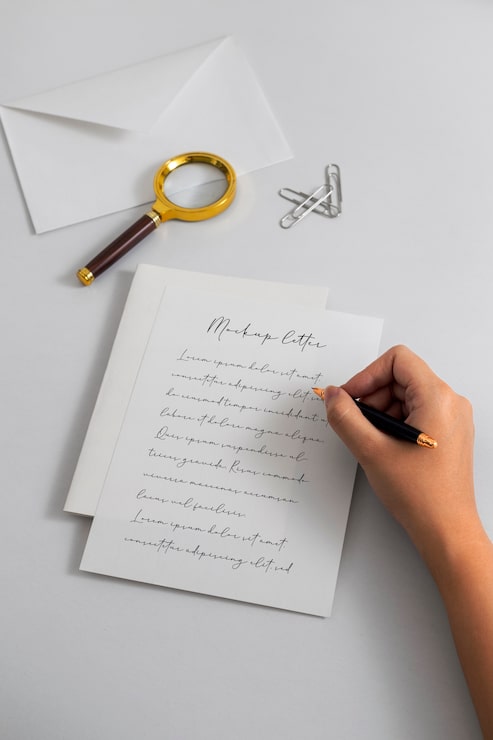 Mockup letter
Lorem ipsum dolor sit amet,
consectetur adipiscing elit, sed
do eiusmod tempor incididunt ut
labore et dolore magna aliqua.
Quis ipsum suspendisse ul
trices gravida. Risus commodo
viverra maecenas accumsan
lacus vel facilisis.
Lorem ipsum dolor sit amet,
consectetur adipiscing elit, sed